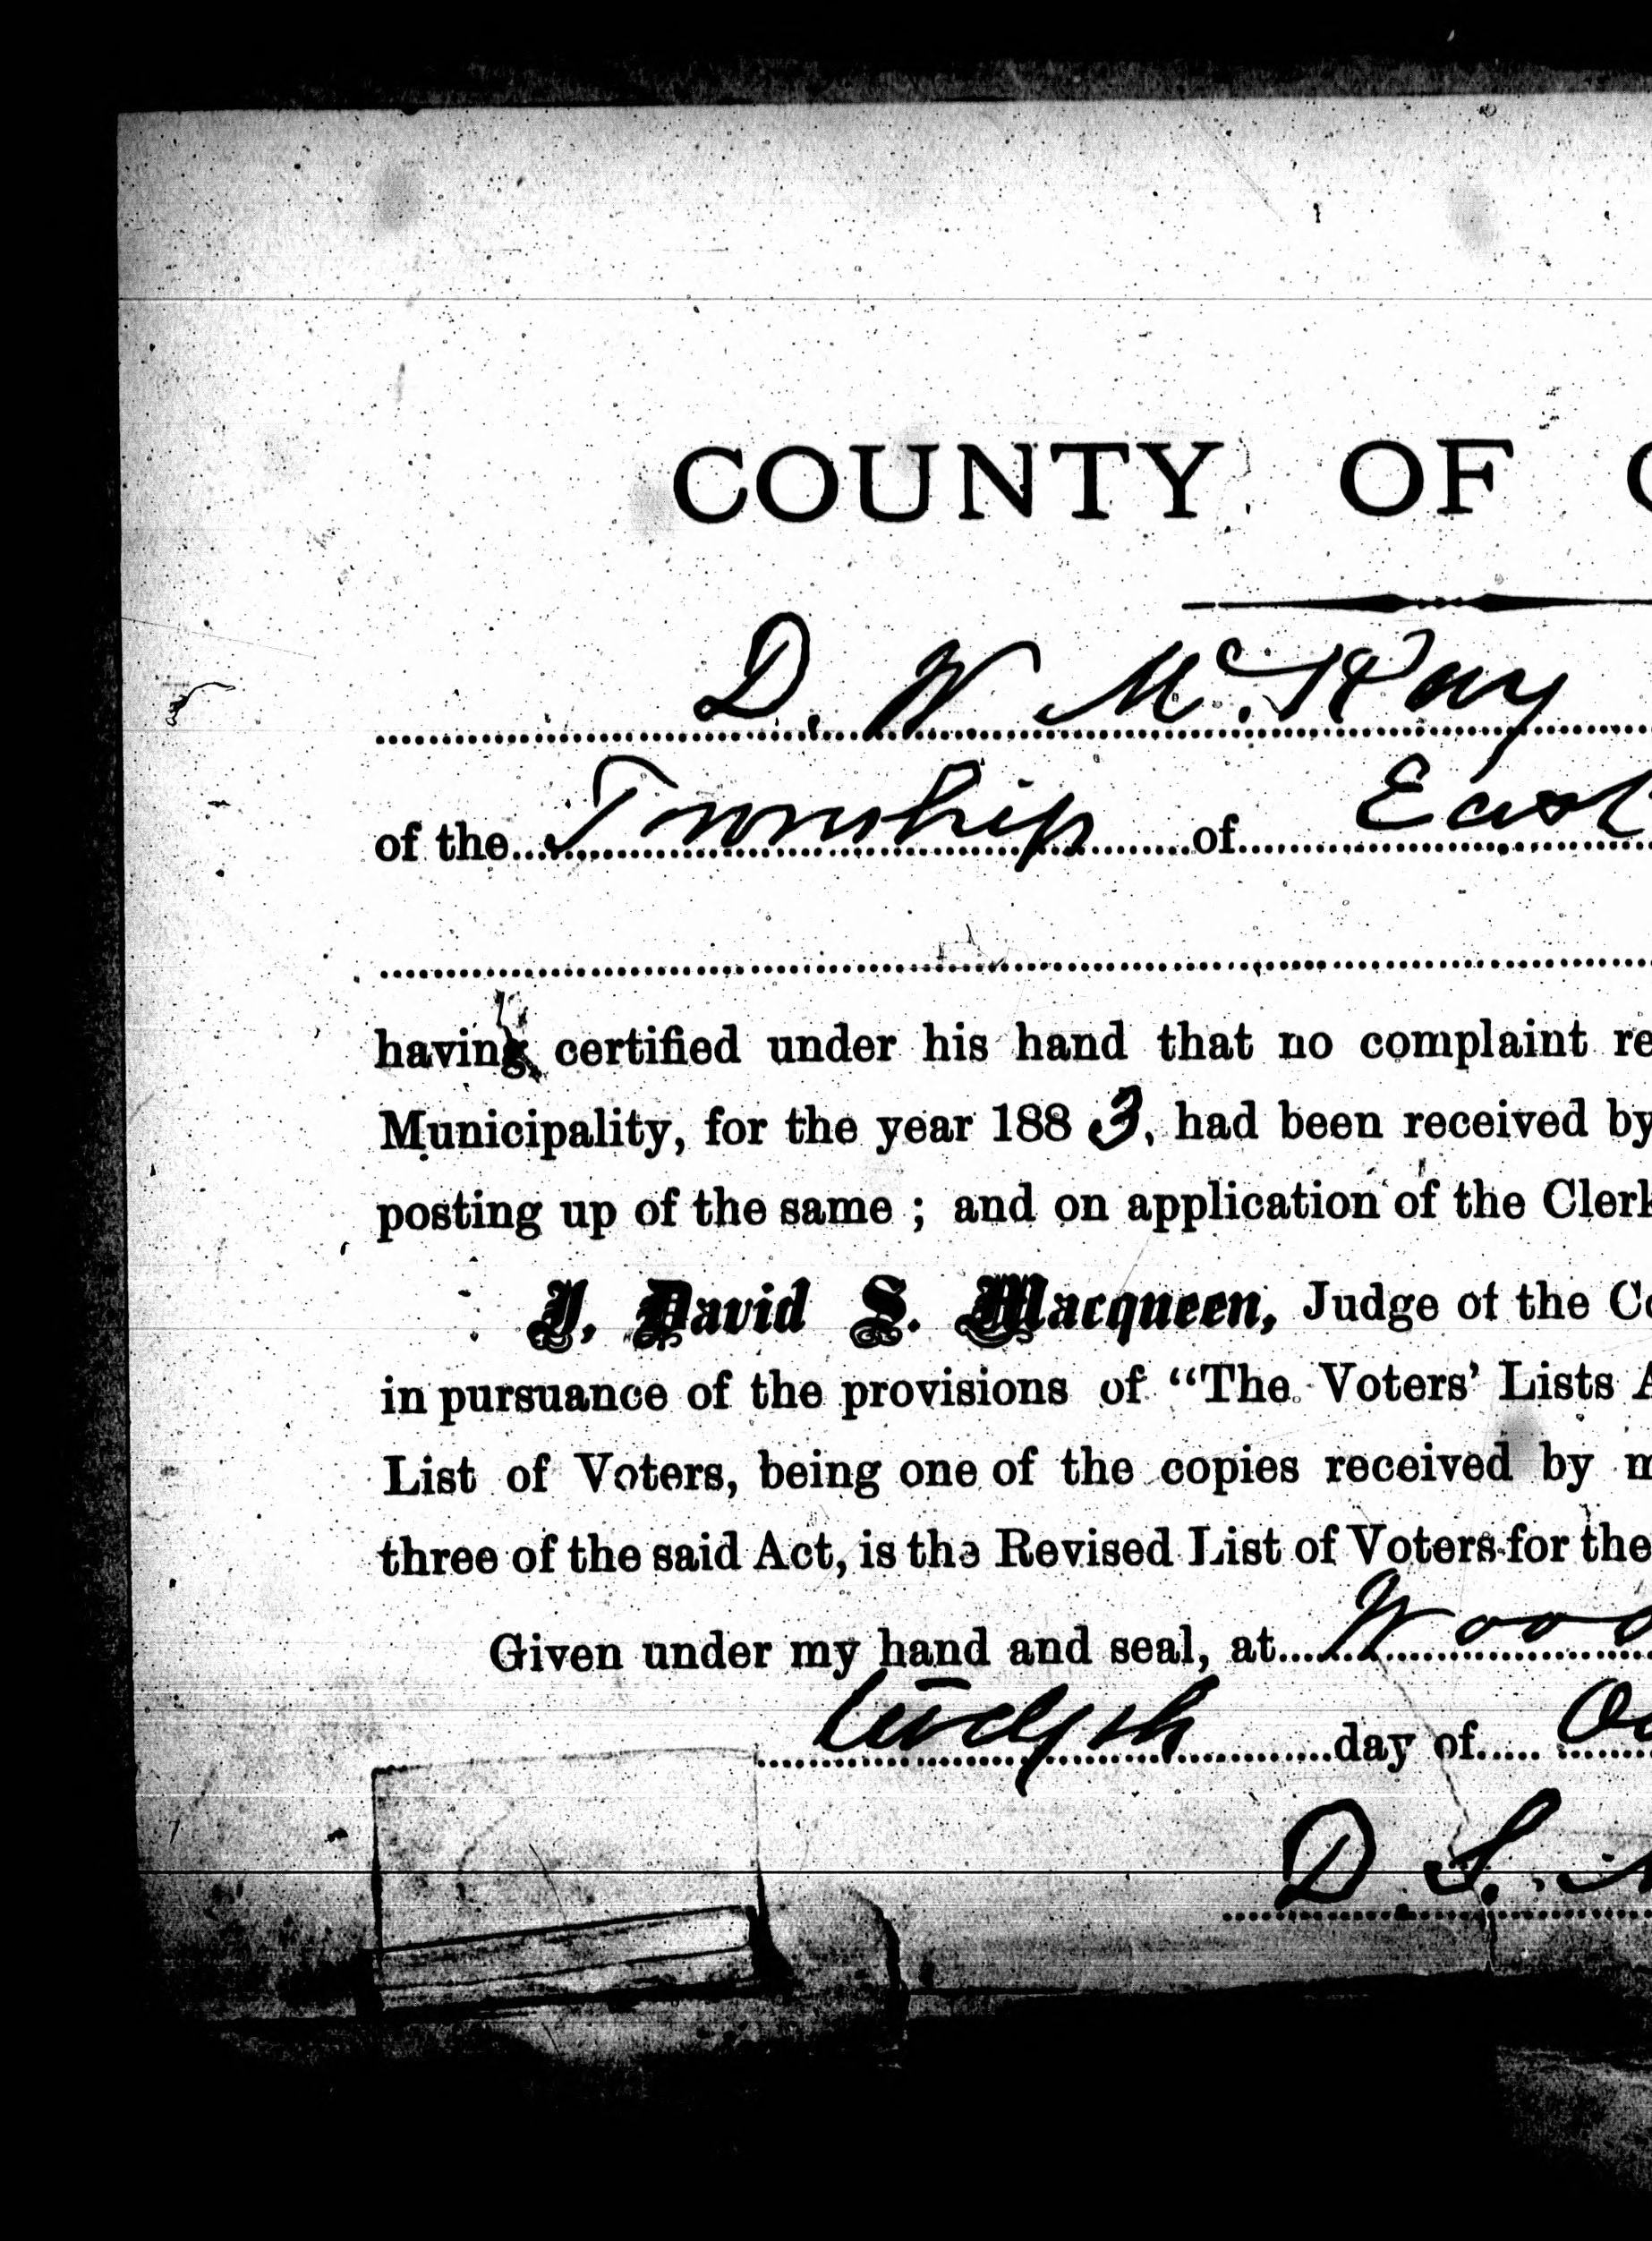 COUNTY OF
D. W McKay
of the Township of East
having certified under his hand that no complaint re
Municipality, for the year 1883, had been received by
posting up of the same ; and on application of the Clerk
I, David S. Macqueen, Judge of the Co
in pursuance of the provisions of “The Voters’ Lists A
List of Voters, being one of the copies received by m
three of the said Act, is the Revised List of Voters for the
Given under my hand and seal, at Wood
day of Oc
D S.